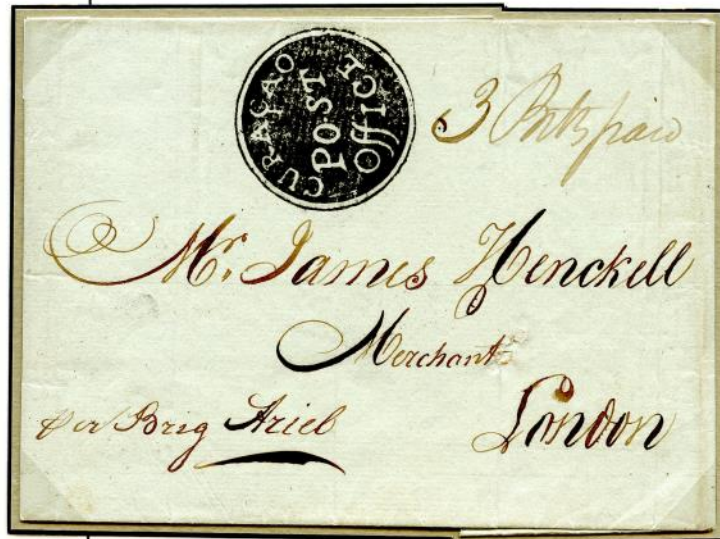 CURAÇAO
POST
OFFICE
3 Bitts paid
Mr. James Henckell
Merchant
London
per Brig Ariel